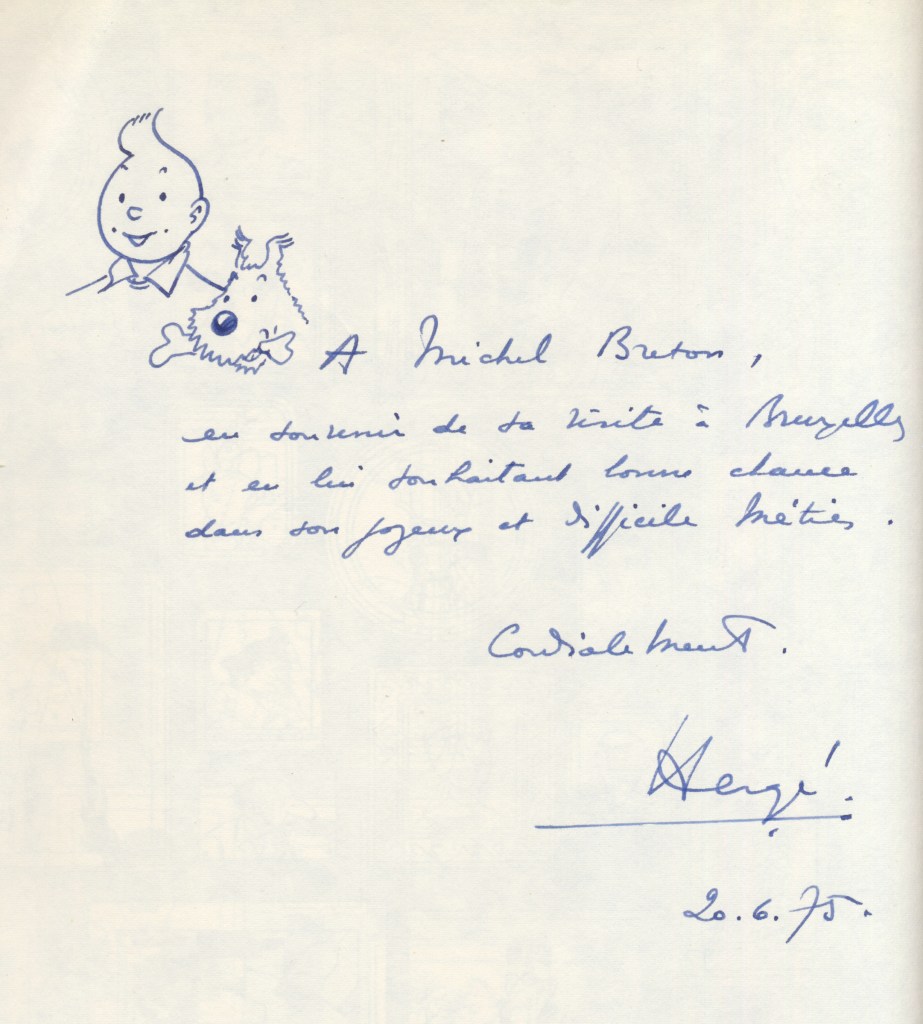 A Michel Breton,
en souvenir de sa visite à Bruxelles
et en lui souhaitant bonne chance
dans son joyeux et difficile métier.
Cordialement.
Hergé.
20.6.75.